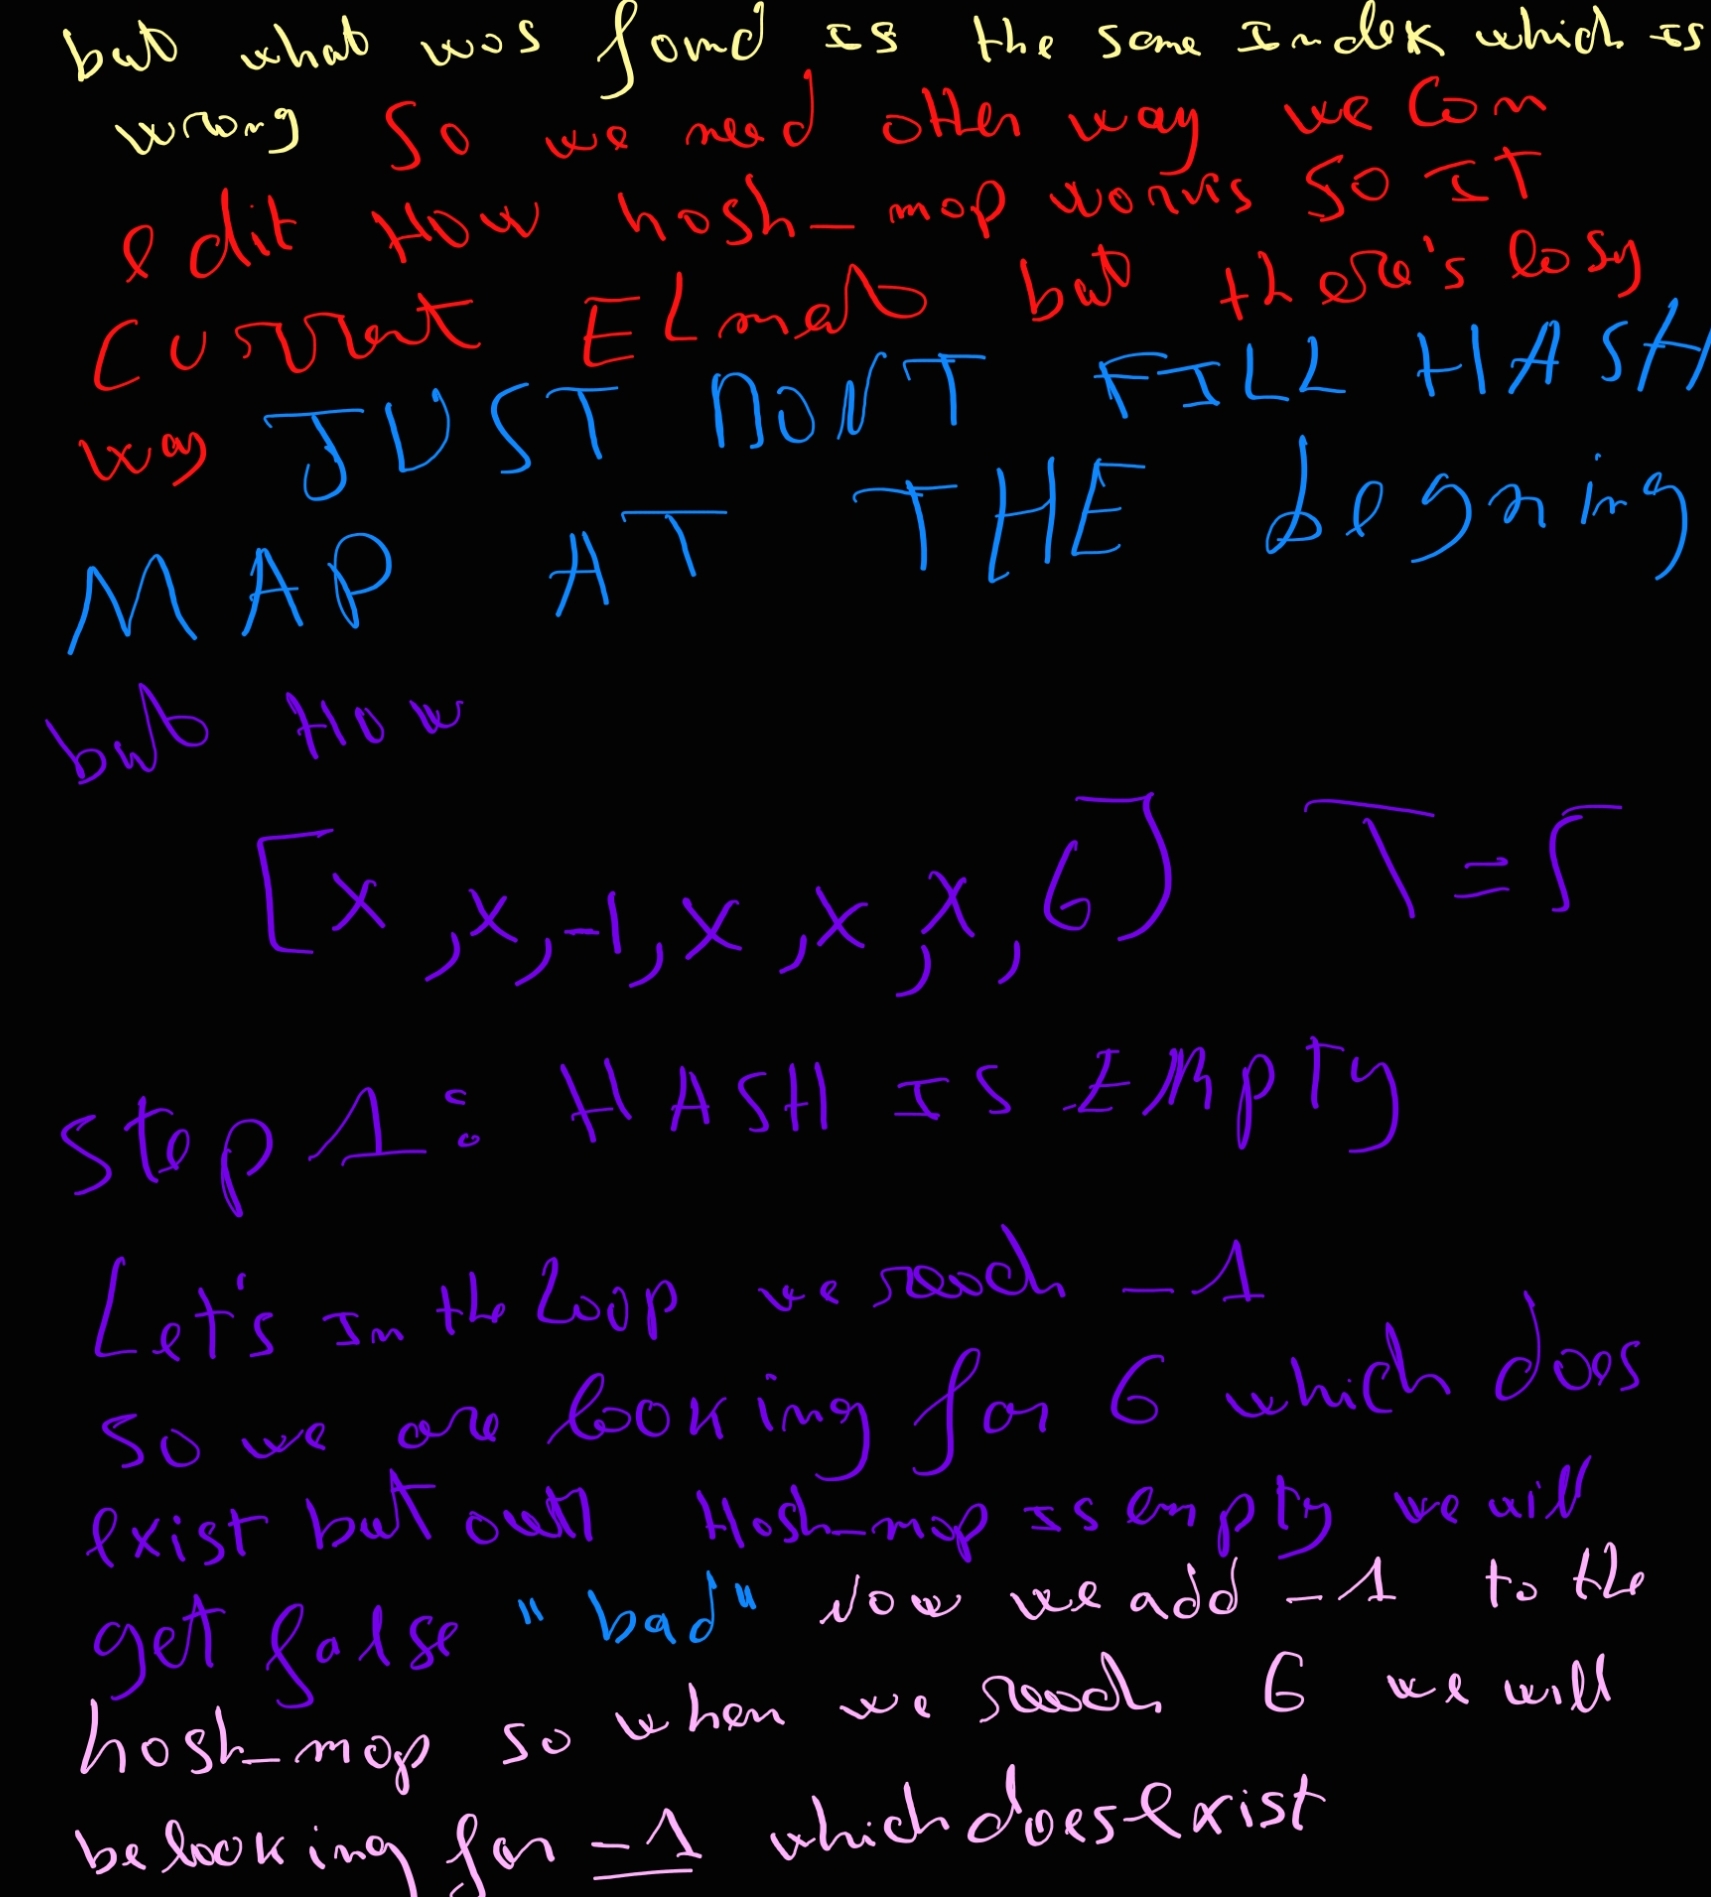 but what was found is the same Index which is
wrong So we need other way we can
edit How hash_map works so IT
Current Elment but there's easy
way JUST DONT FILL HASH
MAP AT THE begning
but How
[x, x, -1, x, x, x, 6] T=5
Step 1: HASH IS EMPTY
Let's In the Loop we reach -1
so we are looking for 6 which does
exist but our Hash_map is empty we will
get false "bad" Now we add -1 to the
hash_map so when we reach 6 we will
be looking for -1 which does exist